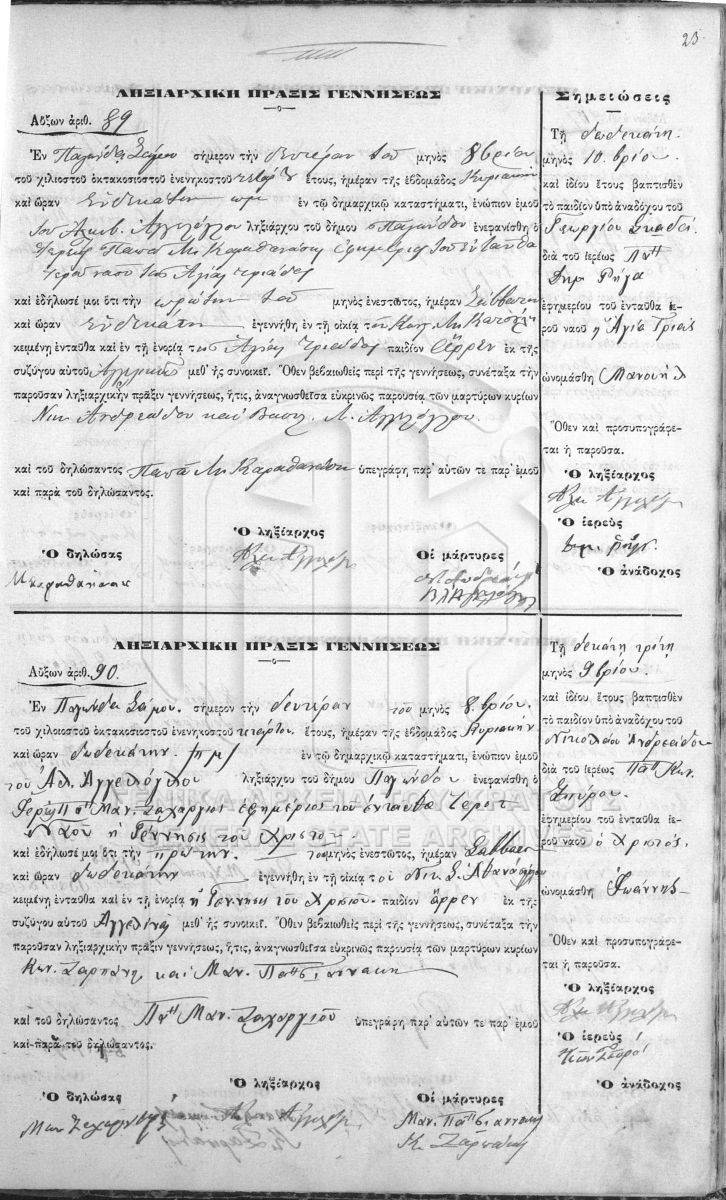 23
ΛΗΞΙΑΡΧΙΚΗ ΠΡΑΞΙΣ ΓΕΝΝΗΣΕΩΣ
Αὔξων ἀριθ. 89
Ἐν Παγώνδα Σάμου σήμερον τὴν δευτέραν τοῦ μηνὸς 8βρίου
τοῦ χιλιοστοῦ ὀκτακοσιοστοῦ ἐνενηκοστοῦ τετάρτου ἔτους, ἡμέραν τῆς ἑβδομάδος Κυριακὴν
καὶ ὥραν ἑνδεκάτην πμ ἐν τῷ δημαρχικῷ καταστήματι, ἐνώπιον ἐμοῦ
τοῦ Ἀγγελόγλου ληξιάρχου τοῦ δήμου Παγώνδου ἐνεφανίσθη ὁ
Παπᾶ Καραθανάσης ἐφημέριος τοῦ ἐνταῦθα
ἱεροῦ ναοῦ τῆς Ἁγίας Τριάδος
καὶ ἐδήλωσέ μοι ὅτι τὴν πρώτην τοῦ μηνὸς ἐνεστῶτος, ἡμέραν Σάββατον
καὶ ὥραν ἑνδεκάτην ἐγεννήθη ἐν τῇ οἰκίᾳ τοῦ
κειμένῃ ἐνταῦθα καὶ ἐν τῇ ἐνορίᾳ τῆς Ἁγίας Τριάδος παιδίον ἄρρεν ἐκ τῆς
συζύγου αὐτοῦ μεθ᾽ ἧς συνοικεῖ. Ὅθεν βεβαιωθεὶς περὶ τῆς γεννήσεως, συνέταξα τὴν
παροῦσαν ληξιαρχικὴν πρᾶξιν γεννήσεως, ἥτις, ἀναγνωσθεῖσα εὐκρινῶς παρουσίᾳ τῶν μαρτύρων κυρίων
Νικ. Ἀνδρεάδου καὶ Βασ. Λ. Ἀγγελόγλου.
καὶ τοῦ δηλώσαντος Παπᾶ Καραθανάση ὑπεγράφη παρ᾽ αὐτῶν τε παρ᾽ ἐμοῦ
καὶ παρὰ τοῦ δηλώσαντος.
Ὁ ληξίαρχος
Ὁ δηλώσας Οἱ μάρτυρες
Σημειώσεις
Τῇ δωδεκάτῃ
μηνὸς 10βρίου
καὶ ἰδίου ἔτους βαπτισθὲν
τὸ παιδίον ὑπὸ ἀναδόχου τοῦ
Γεωργίου
διὰ τοῦ ἱερέως Παπ
Δημ. Ρήγα
ἐφημερίου τοῦ ἐνταῦθα ἱε-
ροῦ ναοῦ ἡ Ἁγία Τριὰς
ὠνομάσθη Μανουὴλ
Ὅθεν καὶ προσυπογράφε-
ται ἡ παροῦσα.
Ὁ ληξίαρχος
Ὁ ἱερεὺς
Ὁ ἀνάδοχος
ΛΗΞΙΑΡΧΙΚΗ ΠΡΑΞΙΣ ΓΕΝΝΗΣΕΩΣ
Αὔξων ἀριθ. 90
Ἐν Παγώνδα Σάμου. σήμερον τὴν δευτέραν τοῦ μηνὸς 8βρίου.
τοῦ χιλιοστοῦ ὀκτακοσιοστοῦ ἐνενηκοστοῦ τετάρτου ἔτους, ἡμέραν τῆς ἑβδομάδος Κυριακὴν
καὶ ὥραν δωδεκάτην. πμ ἐν τῷ δημαρχικῷ καταστήματι, ἐνώπιον ἐμοῦ
τοῦ Ἀλ. Ἀγγελόγλου ληξιάρχου τοῦ δήμου Παγώνδου ἐνεφανίσθη ὁ
Μαν. Ζαχαργιοῦ ἐφημέριος τοῦ ἐνταῦθα ἱεροῦ
ναοῦ ἡ Γέννησις τοῦ Χριστοῦ
καὶ ἐδήλωσέ μοι ὅτι τὴν πρώτην. τοῦ μηνὸς ἐνεστῶτος, ἡμέραν Σάββατον
καὶ ὥραν δωδεκάτην ἐγεννήθη ἐν τῇ οἰκίᾳ τοῦ Νικ. Σ. Ἀθανασίου
κειμένῃ ἐνταῦθα καὶ ἐν τῇ ἐνορίᾳ ἡ Γέννησις τοῦ Χριστοῦ παιδίον ἄρρεν ἐκ τῆς
συζύγου αὐτοῦ Ἀγγελίνα μεθ᾽ ἧς συνοικεῖ. Ὅθεν βεβαιωθεὶς περὶ τῆς γεννήσεως, συνέταξα τὴν
παροῦσαν ληξιαρχικὴν πρᾶξιν γεννήσεως, ἥτις, ἀναγνωσθεῖσα εὐκρινῶς παρουσίᾳ τῶν μαρτύρων κυρίων
Κων. Ζαρπάνη καὶ Μαν. Παπᾶ
καὶ τοῦ δηλώσαντος Παπ Μαν. Ζαχαργιοῦ ὑπεγράφη παρ᾽ αὐτῶν τε παρ᾽ ἐμοῦ
καὶ παρὰ τοῦ δηλώσαντος.
Ὁ ληξίαρχος
Ὁ δηλώσας Οἱ μάρτυρες
Μαν.
Κ. Ζαρπάνη
Τῇ δεκάτῃ τρίτῃ
μηνὸς 9βρίου.
καὶ ἰδίου ἔτους βαπτισθὲν
τὸ παιδίον ὑπὸ ἀναδόχου τοῦ
Νικολάου Ἀνδρεάδου
διὰ τοῦ ἱερέως Παπ Κων.
Σπύρου
ἐφημερίου τοῦ ἐνταῦθα ἱε-
ροῦ ναοῦ ὁ Χριστός,
ὠνομάσθη Ἰωάννης
Ὅθεν καὶ προσυπογράφε-
ται ἡ παροῦσα.
Ὁ ληξίαρχος
Ὁ ἱερεὺς
Ὁ ἀνάδοχος
ΓΕΝΙΚΑ ΑΡΧΕΙΑ ΤΟΥ ΚΡΑΤΟΥΣ
GENERAL STATE ARCHIVES